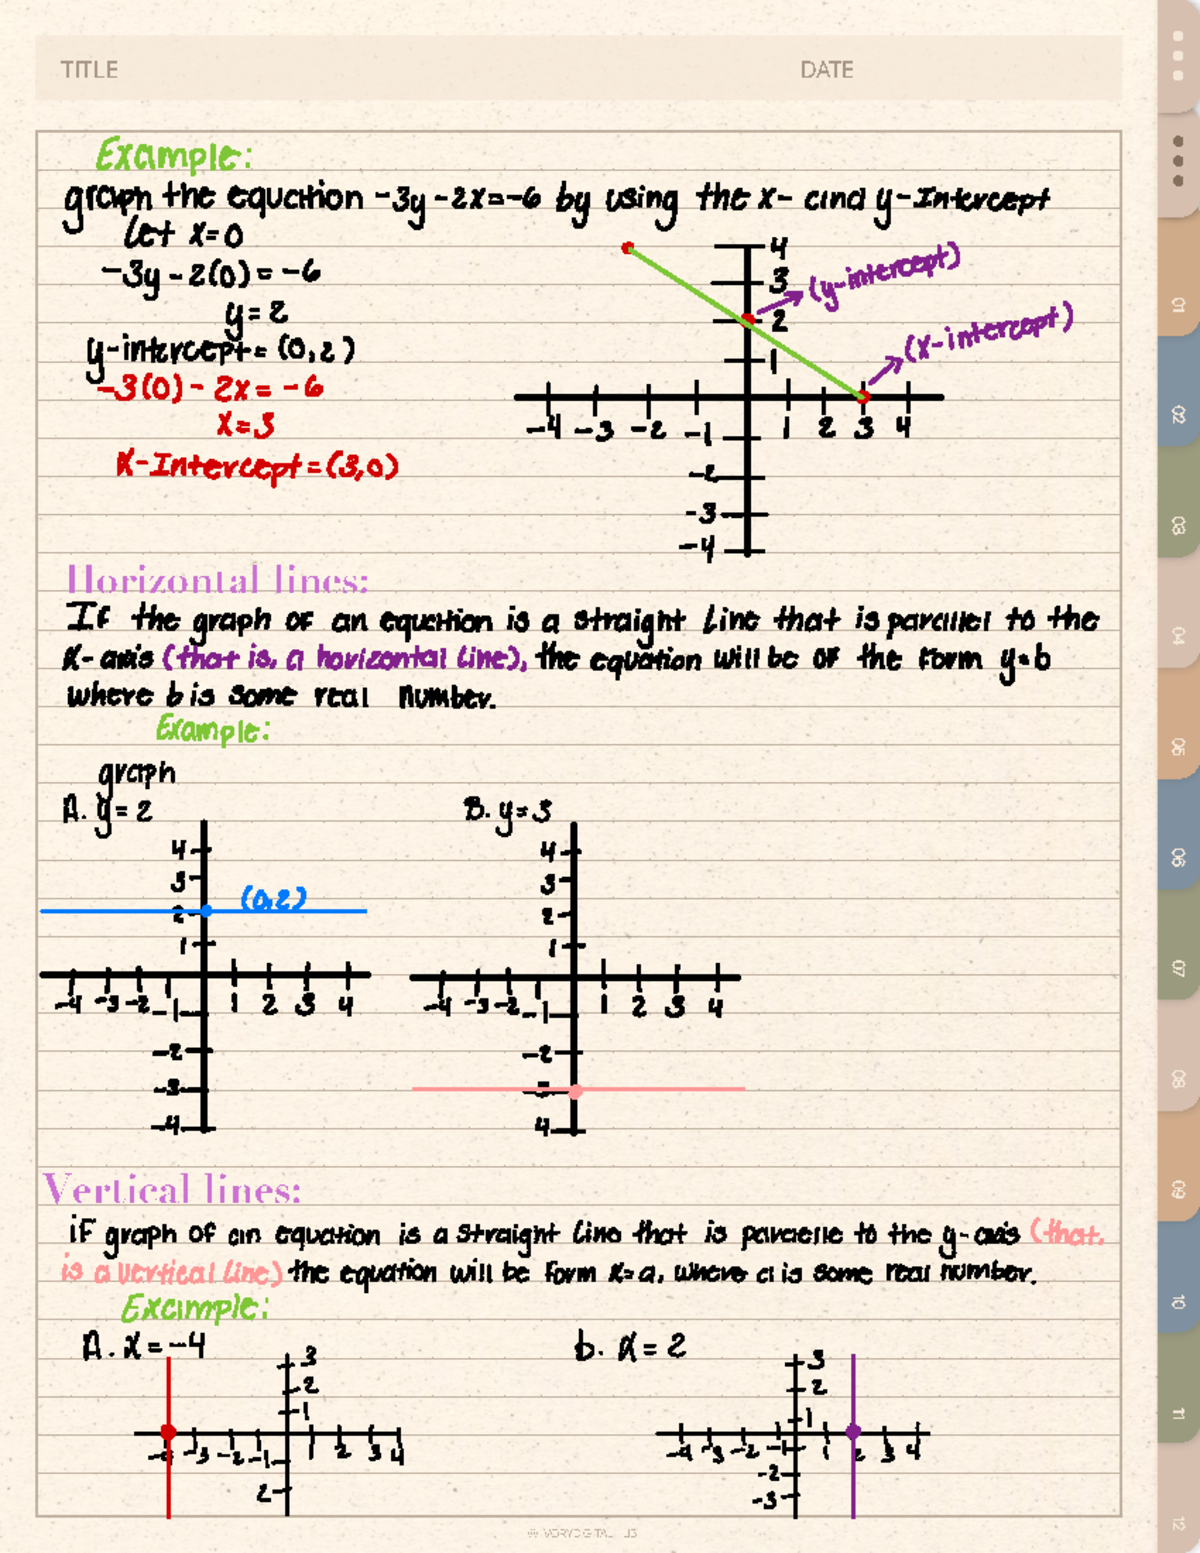 TITLE
DATE
Example:
graph the equation -3y-2x=-6 by using the x- and y-Intercept
Let x=0
-3y-2(0)=-6
y=2
y-intercept=(0,2)
-3(0)-2x=-6
x=3
X-Intercept=(3,0)
4
3
2
1
(y-intercept)
(x-intercept)
-4 -3 -2 -1 1 2 3 4
-2
-3
-4
Horizontal lines:
If the graph of an equation is a straight Line that is parallel to the
X-axis (that is, a horizontal line), the equation will be of the form y=b
where b is some real number.
Example:
graph
A. y=2
B. y=3
4
3
2
1
(0,2)
-4 -3 -2 -1 1 2 3 4
-2
-3
-4
4
3
2
1
-4 -3 -2 -1 1 2 3 4
-2
-3
4
Vertical lines:
if graph of an equation is a straight Line that is to the y-axis (that.
is a vertical line) the equation will be form x=a, where a is some real number.
Example:
A. x=-4
b. x=2
3
2
1
-4 -3 -2 -1 1 2 3 4
2
3
2
1
-4 -3 -2 -1 1 2 3 4
-2
-3
01
02
03
04
05
06
07
08
09
10
11
12